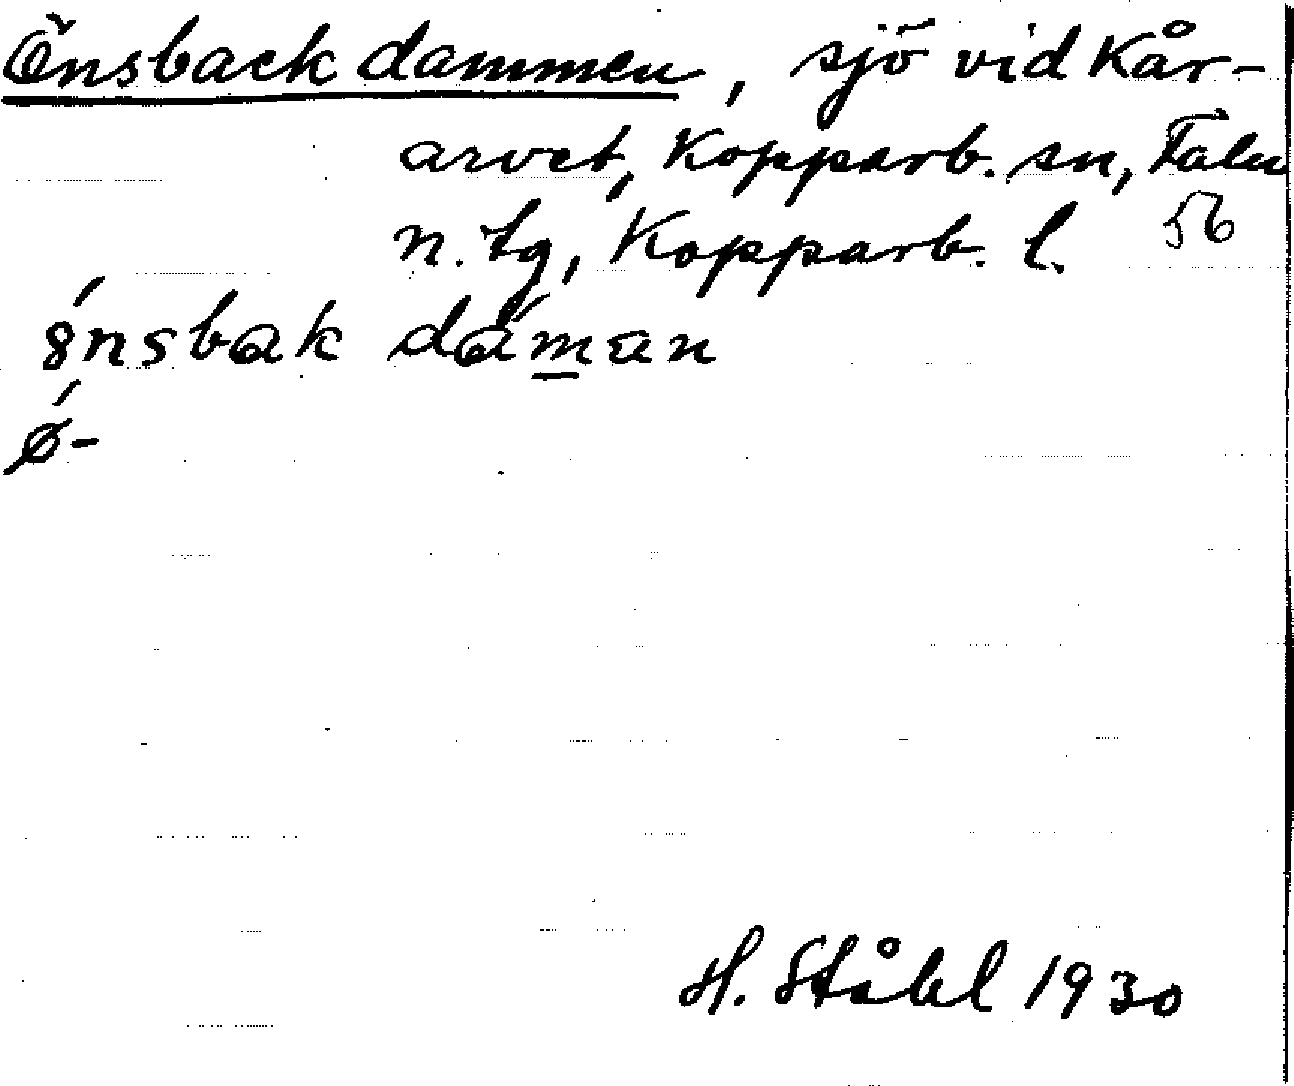 Önsbackdammen, sjö vid Kår-
arvet, Kopparb. sn, Falu
n. tg, Kopparb. l. 56
ǿnsbak dáman
ǿ-
H. Ståhl 1930